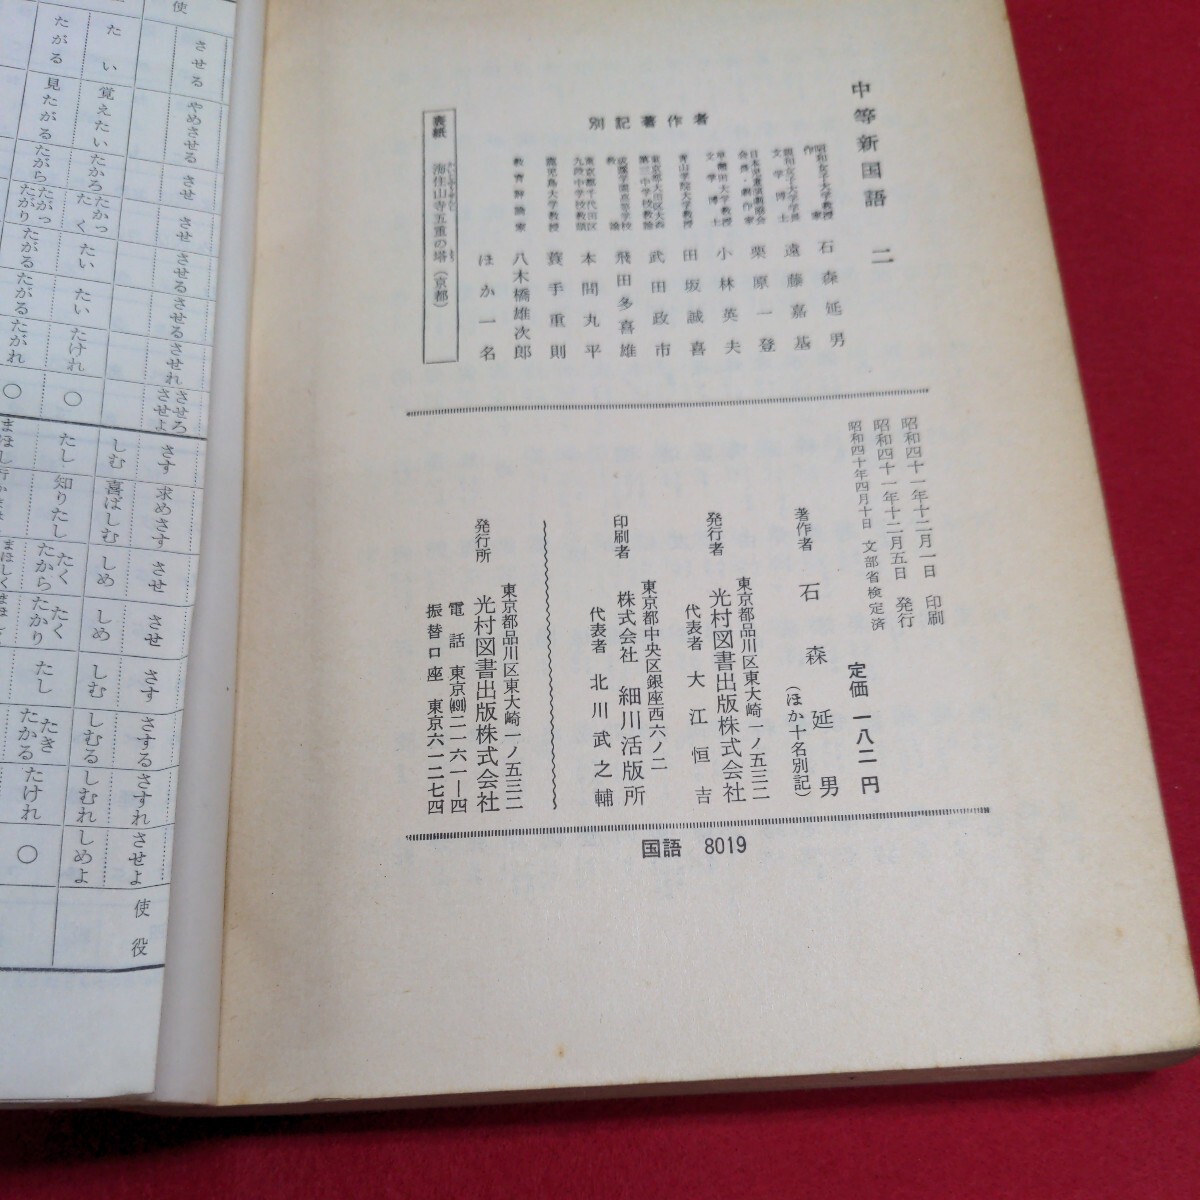 中等新国語 二
別記著作者
昭和女子大学教授
作家
石森延男
昭和女子大学学長
文学博士
遠藤嘉基
日本児童演劇協会
会長・劇作家
栗原一登
早稲田大学教授
文学博士
小林英夫
青山学院大学教授
田坂誠喜
武田政市
飛田多喜雄
東京都千代田区
九段中学校教頭
本間丸平
鹿児島大学教授
蓑手重則
教育評論家
八木橋雄次郎
ほか一名
表紙 海住山寺五重の塔(京都)
昭和四十一年十二月一日 印刷
昭和四十一年十二月五日 発行
昭和四十年四月十日 文部省検定済
定価 一八二円
著作者 石森延男
(ほか十名別記)
東京都品川区東大崎一ノ五三二
発行者 光村図書出版株式会社
代表者 大江恒吉
東京都中央区銀座西六ノ二
印刷者 株式会社 細川活版所
代表者 北川武之輔
東京都品川区東大崎一ノ五三二
発行所 光村図書出版株式会社
電話 東京(491)二一六一―四
振替口座 東京六一二七四
国語 8019
使
させる やめさせる させ させ させる させる させれ させろ させよ
たい 覚えたい たかろ たかっ たく たい たい たけれ ○
たがる 見たがる たがら たがっ たがり たがる たがる たがれ ○
さす 求めさす させ させ さす さする さすれ させよ
使役
しむ 喜ばしむ しめ しめ しむ しむる しむれ しめよ
たし 知りたし たく たから たく たかり たし たき たかる たけれ ○